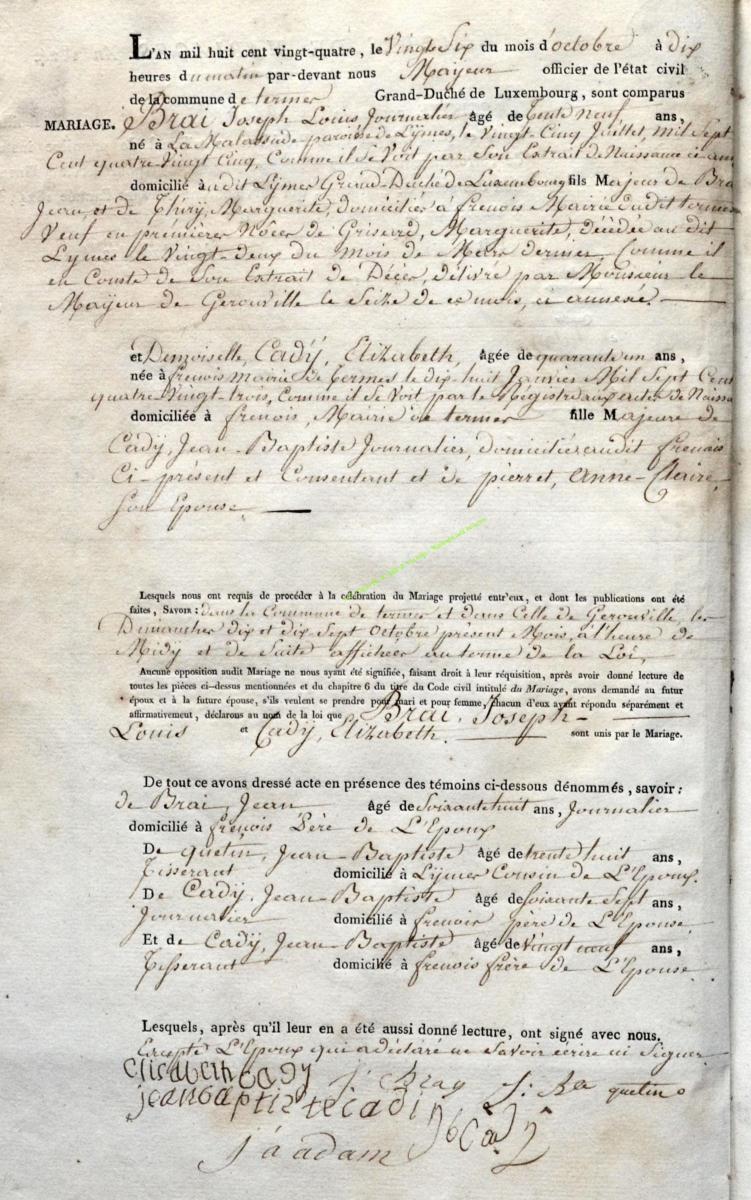 L'AN mil huit cent vingt-quatre, le Vingt Six du mois d'octobre à dix
heures du matin par-devant nous Mayeur officier de l'état civil
de la commune de termes Grand-Duché de Luxembourg, sont comparus
MARIAGE. Brai Joseph Louis Journalier âgé de trente Neuf ans,
né à La Malassude paroisse de Lÿmes, le Vingt-Cinq Juillet, Mil Sept
Cent quatre Vingt Cinq, Comme il Se Voit par Son Extrait de Naissance ci ann
domicilié audit Lÿmes Grand-Duché de Luxembourg fils Majeur de Bra
Jean, et de Thiry, Marguerite, domiciliés à frenois Mairie dudit termes
Veuf en premières Nôces de Grisard, Marguerite, décédée au dit
Lÿmes le Vingt-deux du Mois de Mars dernier, Comme il
en Conste de Son Extrait de Décès, délivré par Monsieur le
Mayeur de Gerouville le Seize de ce mois, ci annexé.
et Demoiselle, Cadÿ, Elizabeth, âgée de quarante un ans,
née à frenois mairie de termes le dix-huit Janvier Mil Sept Cent
quatre Vingt-trois, Comme il se Voit par le Registre aux actes de Naissa
domiciliée à frenois, Mairie de termes fille Majeure de
Cadÿ, Jean-Baptiste Journalier, domicilié audit frenois
Ci-présent et Consentant et de pierret, Anne-Claire,
Son Epouse.
Lesquels nous ont requis de procéder à la célébration du Mariage projetté entr'eux, et dont les publications ont été
faites, SAVOIR : dans la Commune de termes et dans Celle de Gerouville, les
Dimanches dix et dix Sept Octobre présent Mois, à l'heure de
Midy et de Suite affichées au terme de la Loi,
Aucune opposition audit Mariage ne nous ayant été signifiée, faisant droit à leur réquisition, après avoir donné lecture de
toutes les pièces ci-dessus mentionnées et du chapitre 6 du titre du Code civil intitulé du Mariage, avons demandé au futur
époux et à la future épouse, s'ils veulent se prendre pour mari et pour femme, chacun d'eux ayant répondu séparément et
affirmativement, déclarons au nom de la loi que Brai, Joseph-
Louis et Cadÿ, Elizabeth. sont unis par le Mariage.
De tout ce avons dressé acte en présence des témoins ci-dessous dénommés, savoir :
de Brai, Jean âgé de Soixante huit ans, Journalier
domicilié à frenois Père de L'Epoux
De quetin, Jean-Baptiste âgé de trente huit ans,
Tisserant domicilié à Lÿmes Cousin de L'Epoux.
De Cadÿ, Jean-Baptiste âgé de Soixante Sept ans,
Journalier domicilié à frenois père de L'Epouse
Et de Cadÿ, Jean-Baptiste âgé de Vingt neuf ans,
Tisserant domicilié à frenois frère de L'Epouse
Lesquels, après qu'il leur en a été aussi donné lecture, ont signé avec nous.
Excepté L'Epoux qui a déclaré ne Savoir écrire ni Signer.
elisabeth cady j: Bray J: Bte quetin
jean baptiste cadi jb Cady
j a adam